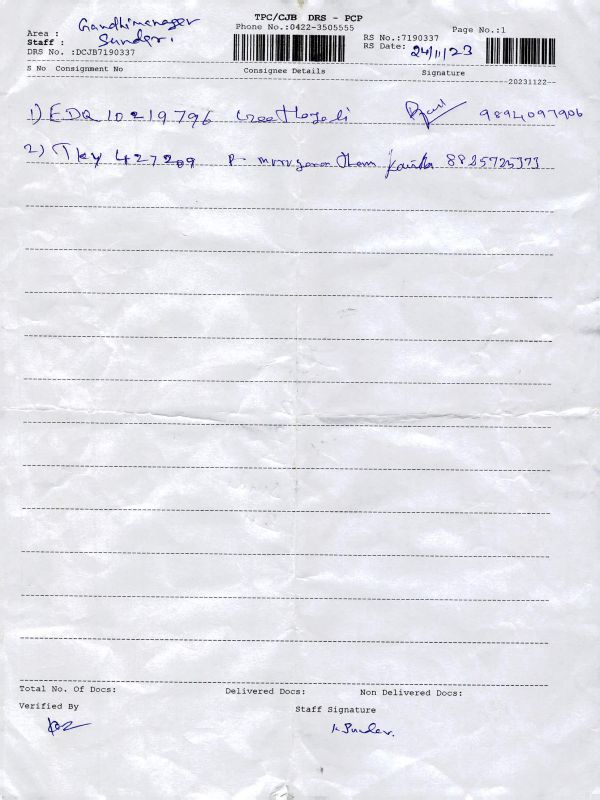 TPC/CJB DRS - PCP
Phone No.:0422-3505555
Page No.:1
Area : Gandhimanager
Staff : Sunder.
RS No.:7190337
RS Date: 24/11/23
DRS No. :DCJB7190337
S No Consignment No Consignee Details Signature
--20231122--
1) EDQ 10219796 9894097906
2) TKY 427209 P- murugananthem Kavitha 8825725373
Total No. Of Docs: Delivered Docs: Non Delivered Docs:
Verified By Staff Signature
K. Sunder.